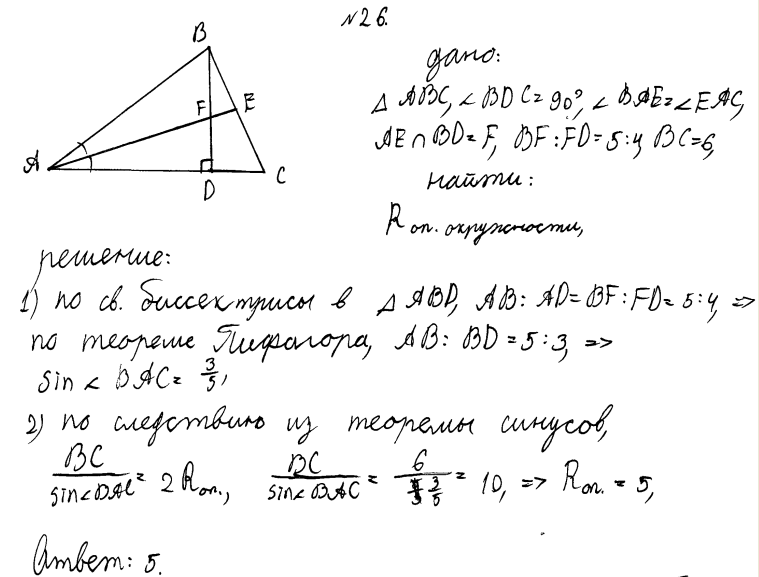 №26.
B
F
E
A
D
C
дано:
△ ABC, ∠ BDC = 90°, ∠ BAE = ∠ EAC,
AE ∩ BD = F, BF : FD = 5 : 4, BC = 6,
найти:
R оп. окружности,
решение:
1) по св. биссектрисы в △ ABD, AB : AD = BF : FD = 5 : 4, =>
по теореме Пифагора, AB : BD = 5 : 3, =>
sin ∠ BAC = 3/5,
2) по следствию из теоремы синусов,
BC/sin∠BAC = 2 Rоп., BC/sin∠BAC = 6/(3/5) = 10, => Rоп. = 5,
Ответ: 5.